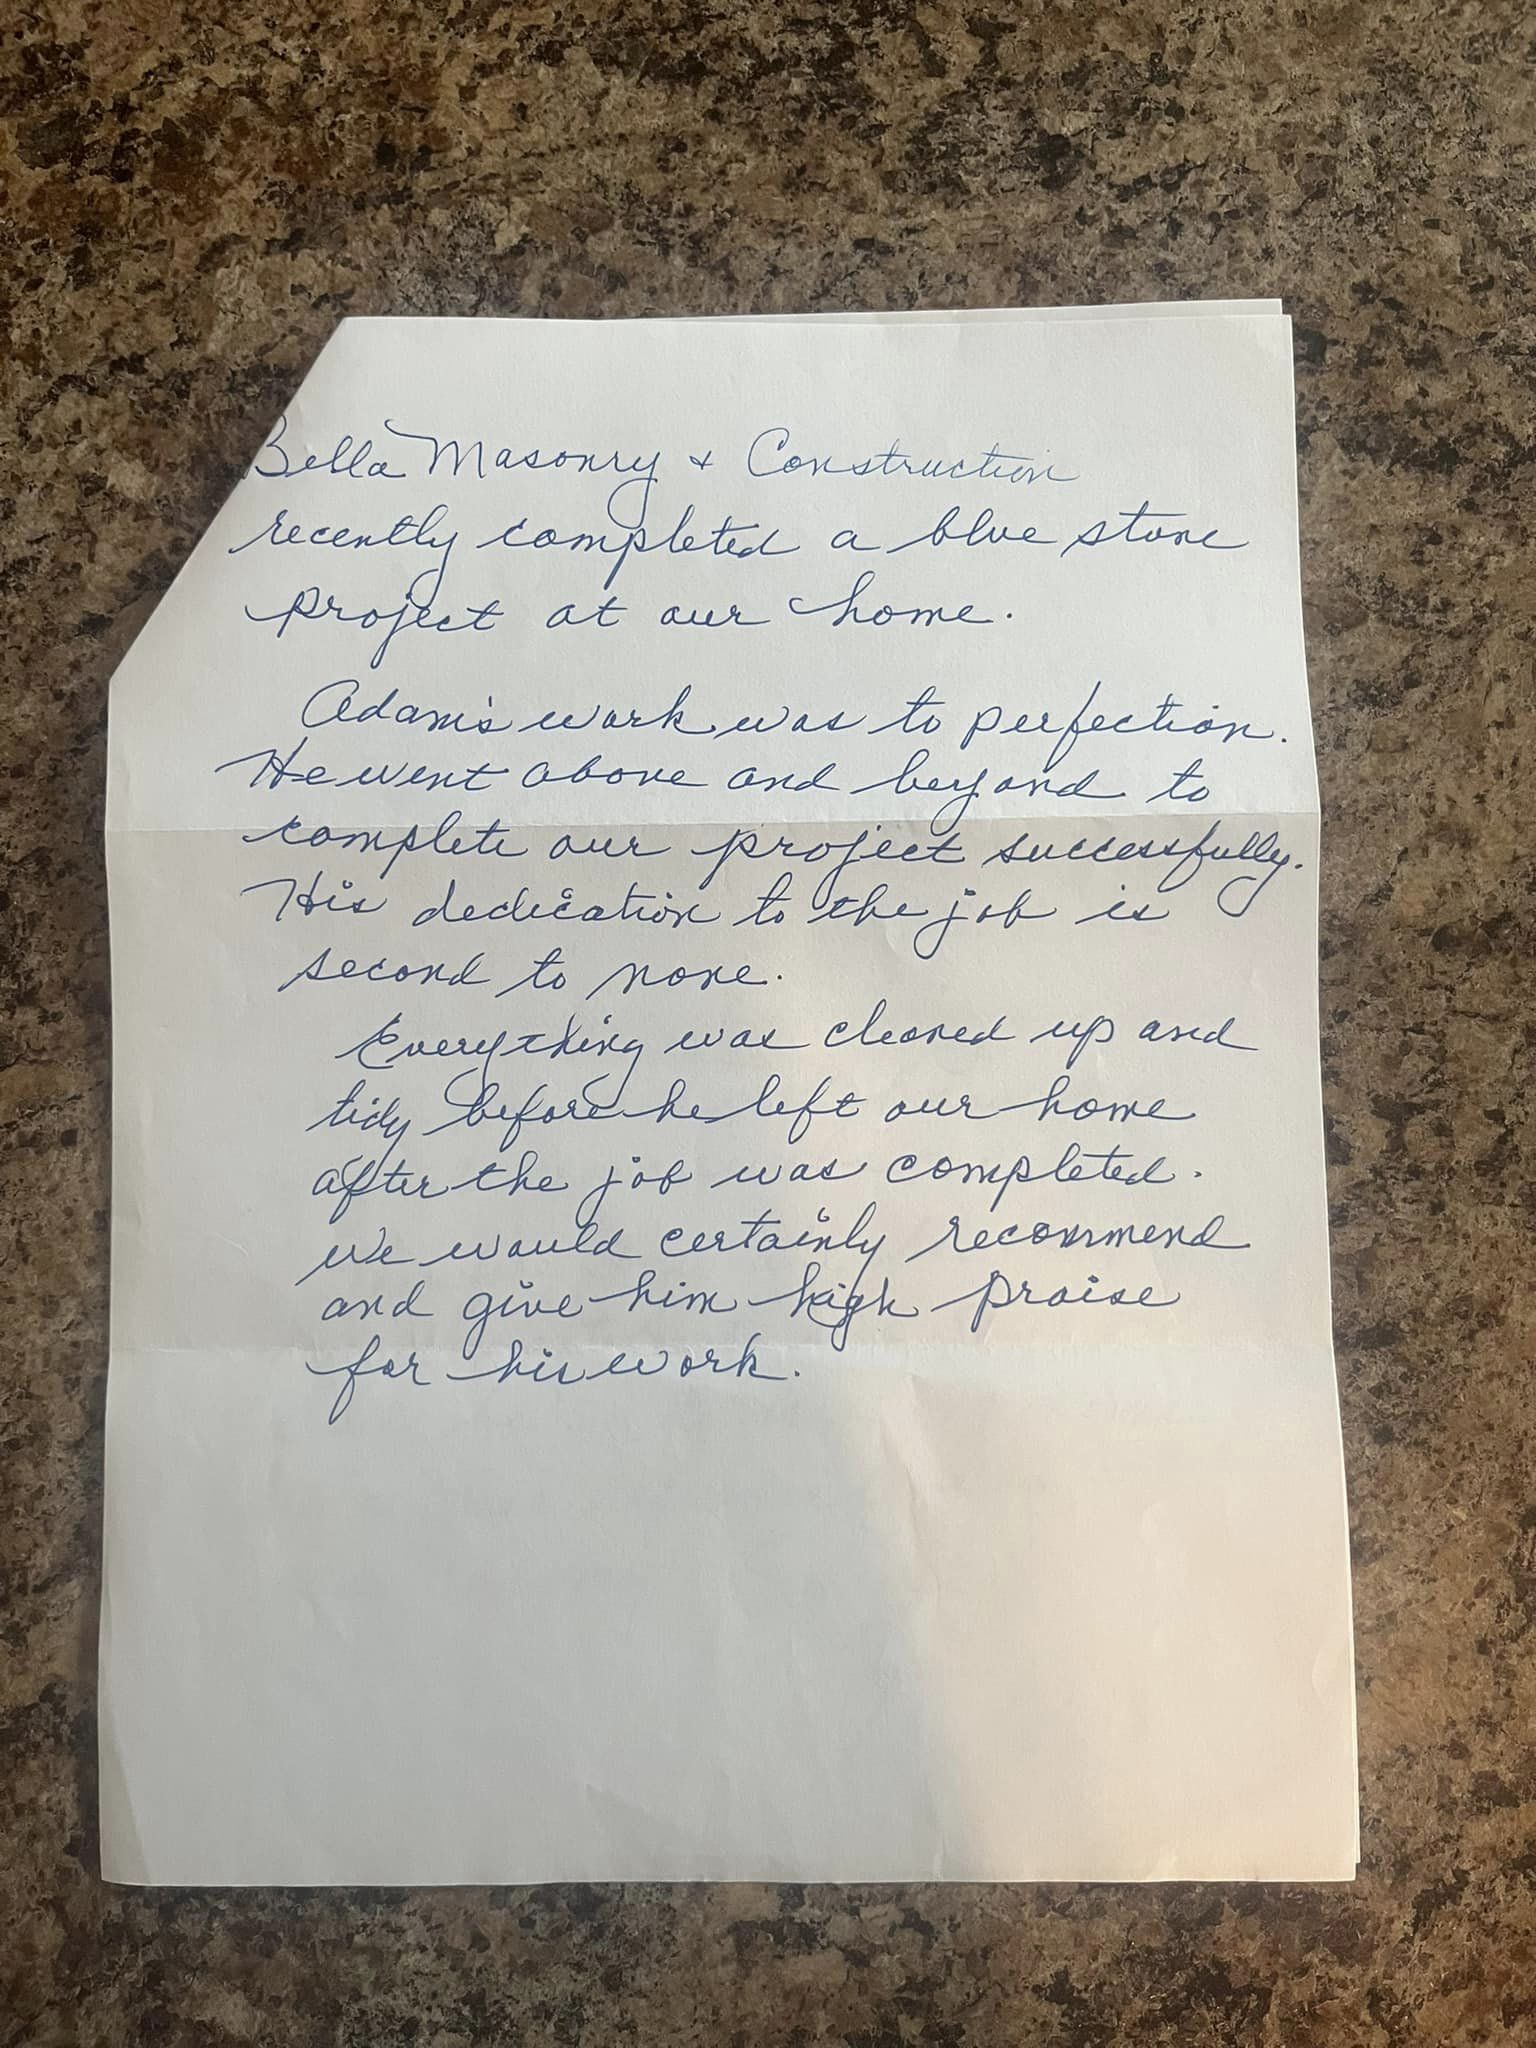 Bella Masonry + Construction
recently completed a blue stone
project at our home.
Adam's work was to perfection.
He went above and beyond to
complete our project successfully.
His dedication to the job is
second to none.
Everything was cleaned up and
tidy before he left our home
after the job was completed.
We would certainly recommend
and give him high praise
for his work.